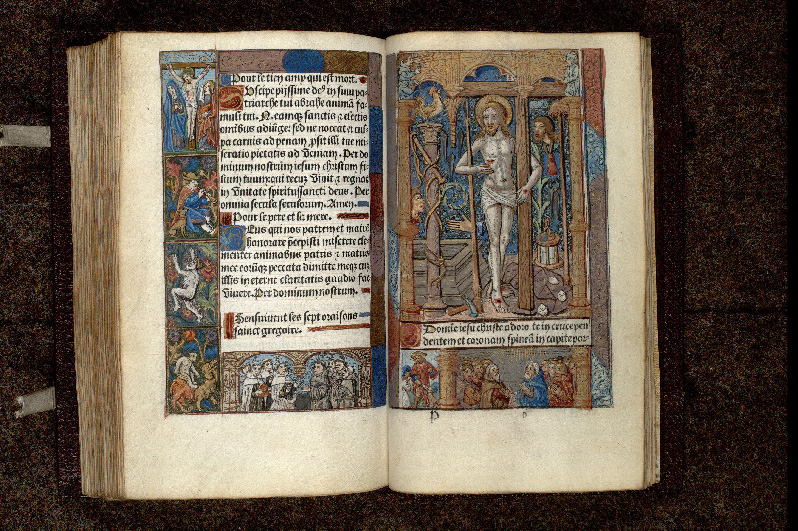 Pour le tien amy qui est mort.
Uscipe pijssime deꝰ in sinu pa-
triarche tui abrahe animā fa-
muli tui. N. eamqꝫ sanctis ⁊ electis
omnibus adiūge: sed ne noceat ei cul-
pa carnis ad penam ꝓsit illi tue mi-
seratio pietatis ad veniam. Per do-
minum nostrum iesum christum fi-
lium tuum: qui tecū vivit ⁊ regnat
in vnitate spiritussancti deus. Per
omnia secula seculorum. Amen.
Pour le pere et la mere.
Eus qui nos patrem et matrē
honorare p̄cepisti miserere cle-
menter animabus patris ⁊ matris
mee eorūqꝫ peccata dimitte meqꝫ cū
illis in eterne claritatis gaudio fac
vivere. Per dominum nostrum.
Sensuivent les sept oraisons
sainct gregoire.
Domine iesu christe adoro te in cruce pen
dentem et coronam spineā in capite por-